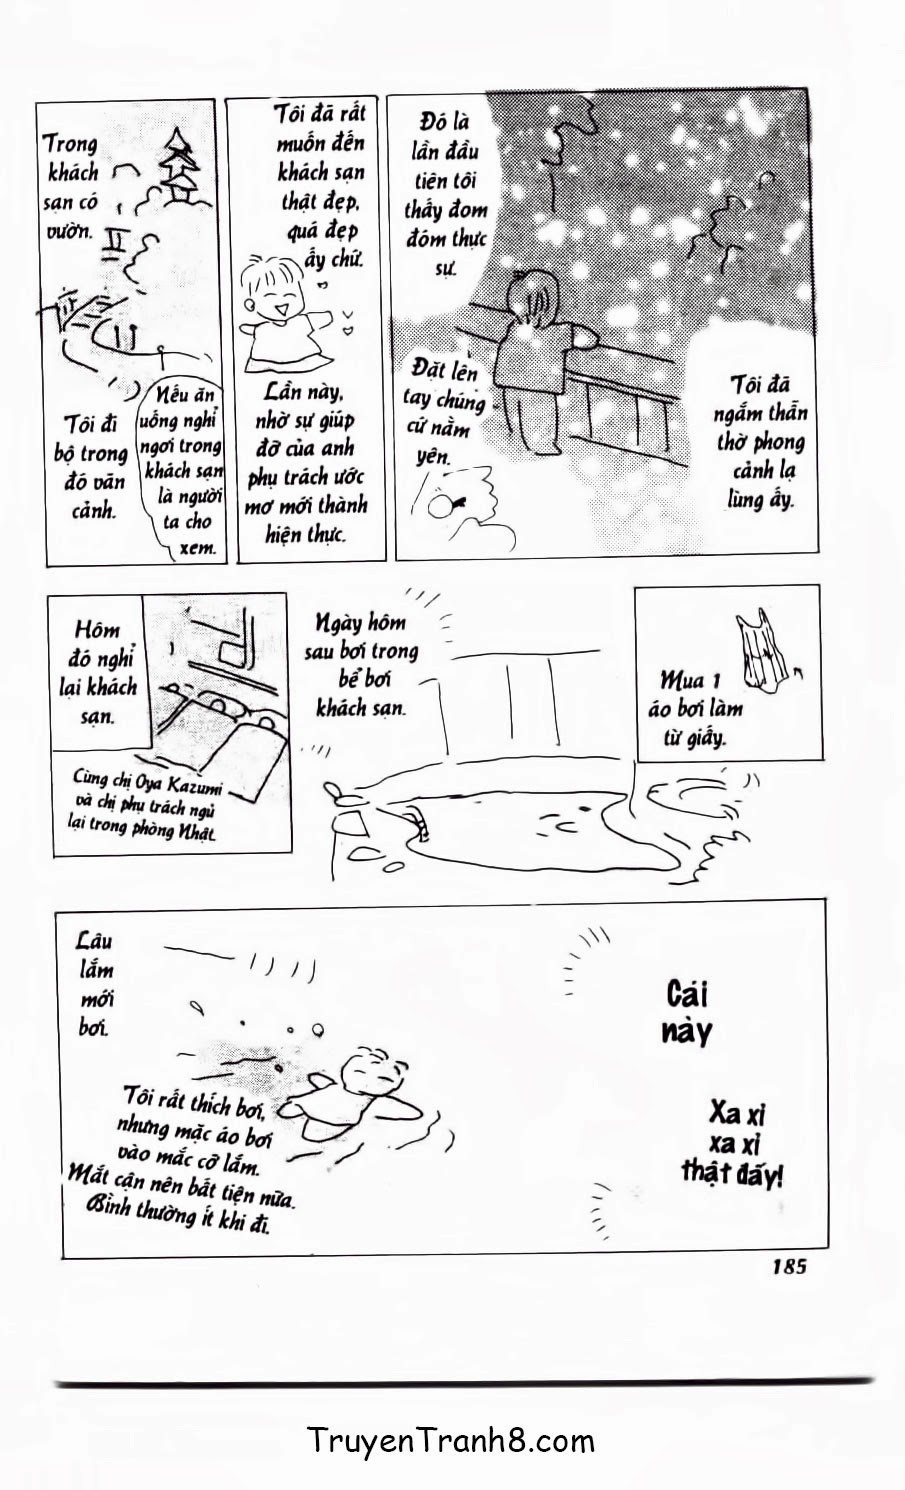 Trong
khách
sạn có
vườn.
Nếu ăn
uống nghỉ
ngơi trong
khách sạn
là người
ta cho
xem.
Tôi đi
bộ trong
đó vãn
cảnh.
Tôi đã rất
muốn đến
khách sạn
thật đẹp,
quá đẹp
ấy chứ.
Lần này,
nhờ sự giúp
đỡ của anh
phụ trách ước
mơ mới thành
hiện thực.
Đó là
lần đầu
tiên tôi
thấy đom
đóm thực
sự.
Đặt lên
tay chúng
cứ nằm
yên.
Tôi đã
ngắm thẫn
thờ phong
cảnh lạ
lùng ấy.
Hôm
đó nghỉ
lại khách
sạn.
Cùng chị Oya Kazumi
và chị phụ trách ngủ
lại trong phòng Nhật.
Ngày hôm
sau bơi trong
bể bơi
khách sạn.
Mua 1
áo bơi làm
từ giấy.
Lâu
lắm
mới
bơi.
Tôi rất thích bơi,
nhưng mặc áo bơi
vào mắc cỡ lắm.
Mắt cận nên bất tiện nữa.
Bình thường ít khi đi.
Cái
này
Xa xỉ
xa xỉ
thật đấy!
185
TruyenTranh8.com